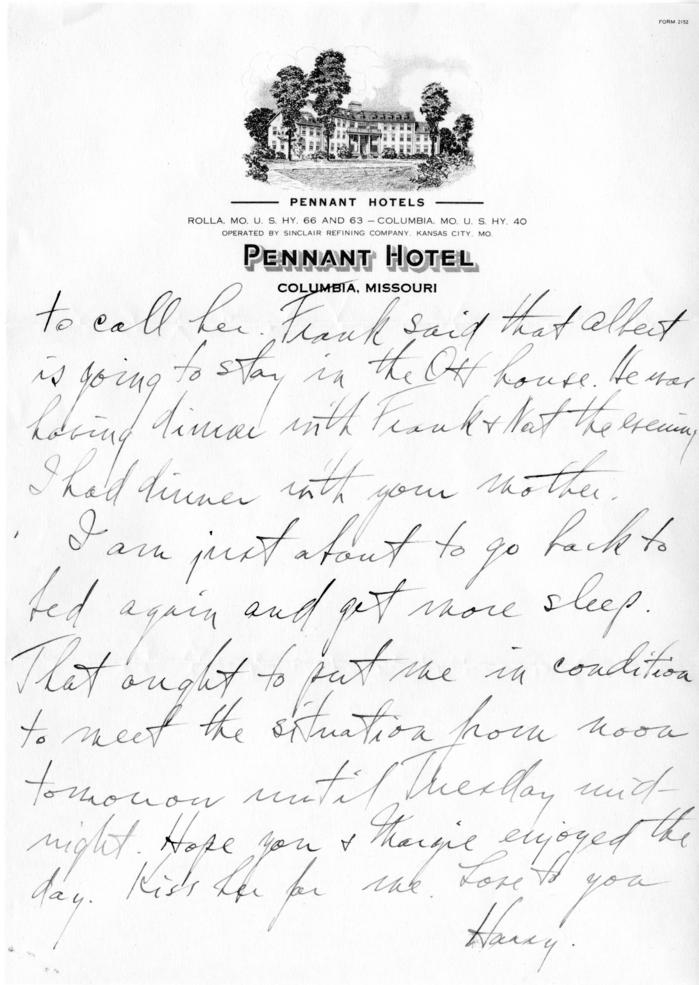 FORM 2152
PENNANT HOTELS
ROLLA, MO. U. S. HY. 66 AND 63 — COLUMBIA, MO. U. S. HY. 40
OPERATED BY SINCLAIR REFINING COMPANY, KANSAS CITY, MO.
PENNANT HOTEL
COLUMBIA, MISSOURI
to call her. Frank said that Albert
is going to stay in the Ott house. He was
having dinner with Frank & Nat the evening
I had dinner with your mother.
I am just about to go back to
bed again and get more sleep.
That ought to put me in condition
to meet the situation from noon
tomorrow until Tuesday mid-
night. Hope you & Margie enjoyed the
day. Kiss her for me. Love to you
Harry.